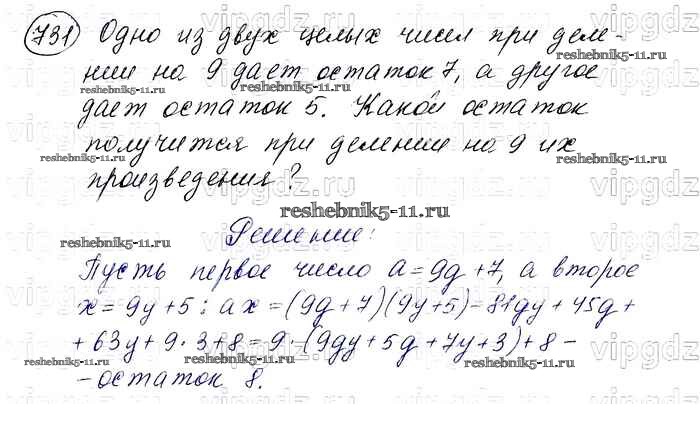 731 Одно из двух целых чисел при деле-
нии на 9 дает остаток 7, а другое
дает остаток 5. Какой остаток
получится при делении на 9 их
произведения?
Решение:
Пусть первое число a = 9g + 7, а второе
x = 9y + 5; ax = (9g + 7)(9y + 5) = 81gy + 45g +
+ 63y + 9 · 3 + 8 = 9 · (9gy + 5g + 7y + 3) + 8 -
- остаток 8.
vipgdz.ru
reshebnik5-11.ru
reshebnik5-11.ru
reshebnik5-11.ru
reshebnik5-11.ru
reshebnik5-11.ru
reshebnik5-11.ru
reshebnik5-11.ru
reshebnik5-11.ru